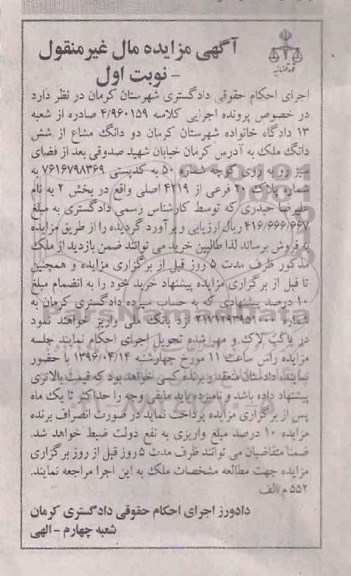 آگهی مزایده مال غیرمنقول
- نوبت اول
اجرای احکام حقوقی دادگستری شهرستان کرمان در نظر دارد
در خصوص پرونده اجرایی کلاسه ۴/۹۶۰۱۵۹ صادره از شعبه
۱۳ دادگاه خانواده شهرستان کرمان دو دانگ مشاع از شش
دانگ ملک به آدرس کرمان خیابان شهید صدوقی بعد از فضای
سبز رو به روی کوچه شماره ۵۰ به کدپستی ۷۶۱۶۷۹۸۳۶۹ به
شماره پلاک ۲۰ فرعی از ۴۲۱۹ اصلی واقع در بخش ۲ به نام
علیرضا حیدری که توسط کارشناس رسمی دادگستری به مبلغ
۴۱۶/۶۶۶/۶۶۷ ریال ارزیابی و برآورد گردیده را از طریق مزایده
به فروش برساند لذا طالبین خرید می توانند ضمن بازدید از ملک
مذکور ظرف مدت ۵ روز قبل از برگزاری مزایده و همچنین
تا قبل از برگزاری مزایده پیشنهاد خرید خود را به انضمام مبلغ
۱۰ درصد پیشنهادی که به حساب سپرده دادگستری کرمان به
شماره ۲۱۷۱۲۹۳۹۵۱۰۰۰ نزد بانک ملی واریز خواهند نمود
در پاکت لاک و مهر شده تحویل اجرای احکام نمایند جلسه
مزایده راس ساعت ۱۱ مورخ چهارشنبه ۱۳۹۶/۰۴/۱۴ با حضور
نماینده دادستان منعقد و برنده کسی خواهد بود که قیمت بالاتری
پیشنهاد داده باشد و نامبرده باید مابقی وجه را حداکثر تا یک ماه
پس از برگزاری مزایده پرداخت نماید در صورت انصراف برنده
مزایده ۱۰ درصد مبلغ واریزی به نفع دولت ضبط خواهد شد.
ضمنا متقاضیان می توانند ظرف مدت ۵ روز قبل از روز برگزاری
مزایده جهت مطالعه مشخصات ملک به این اجرا مراجعه نمایند.
۵۵۲ م/الف
دادورز اجرای احکام حقوقی دادگستری کرمان
شعبه چهارم - الهی
ParsNamadData